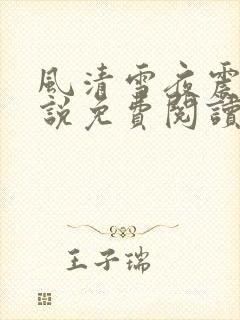 風清雪夜震
說免費閱讀
王子瑞